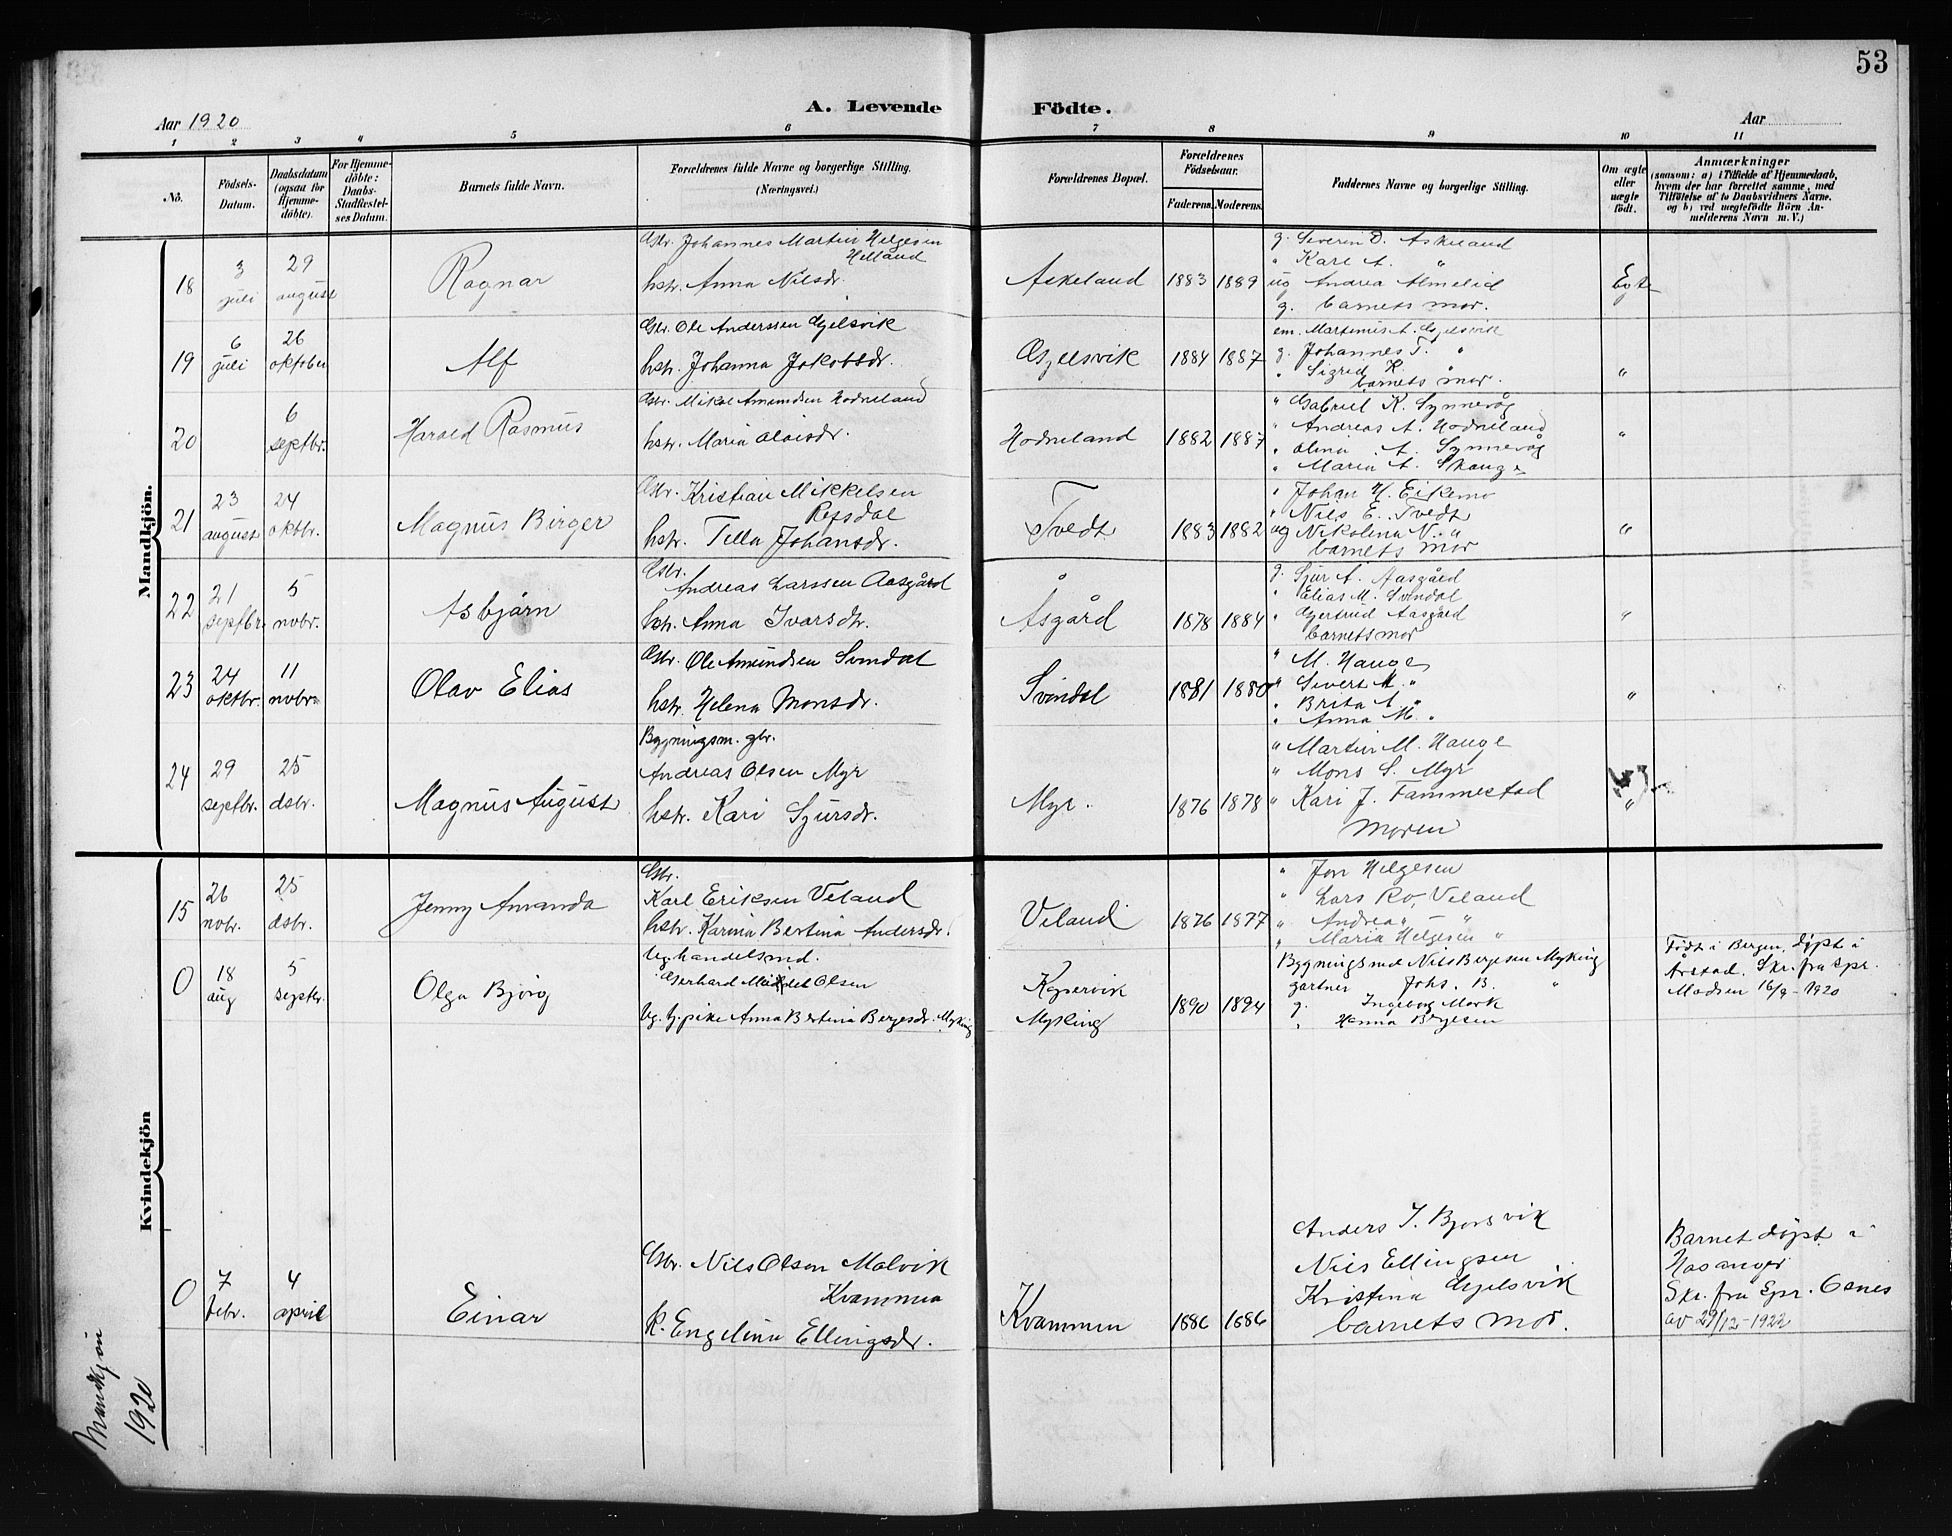 53
A. Levende Födte.
Aar 1920
Aar
1 2 3 4 5 6 7 8 9 10 11
No.
Födsels-Datum.
Daabsdatum (ogsaa for Hjemme-döbte).
For Hjemme-döbte: Daabs-Stadfæstel-ses Datum.
Barnets fulde Navn.
Forældrenes fulde Navne og borgerlige Stilling. (Næringsvei.)
Forældrenes Bopæl.
Forældrenes Födselsaar.
Faderens. Moderens.
Faddernes Navne og borgerlige Stilling.
Om ægte eller uægte födt.
Anmærkninger
(saasom: a) i Tilfælde af Hjemmedaab, hvem der har forrettet samme, med Tilföielse af to Daabsvidners Navne, og b) ved uægtefödte Börn An-melderens Navn m. V.)
Mandkjön.
18 3 juli 29 august Ragnar
Gbr. Johannes Martin Helgesen Helland
hstr. Anna Nilsdr.
Askeland 1883 1889
g. Severin O. Askeland
" Kari A. "
ug Andrea Almelid
g. barnets mor.
Egte
19 6 juli 26 oktober Alf
Gbr. Ole Anderssen Gjelsvik
hstr. Johanna Jakobsdr.
Gjelsvik 1884 1887
em. Martinus A. Gjelsvik
g. Johannes T. "
" Sigrid K. "
barnets mor.
"
20 6 septbr. Harald Rasmus
Gbr. Mikal Amundsen Hodneland
hstr. Maria Olaisdr.
Hodneland 1882 1887
" Gabriel K. Synnevåg
" Andreas A. Hodneland
" Olina A. Synnevåg
" Maria A. Skauge
"
21 23 august 24 oktbr. Magnus Birger
Gbr. Kristian Mikkelsen Refsdal
hstr. Tilla Johansdr.
Tvedt 1883 1882
" Johan H. Eikemo
" Nils E. Tvedt
ug Nikolina N. "
barnets mor
"
22 21 septbr. 5 novbr. Asbjørn
Gbr. Andreas Larssen Aasgård
hstr. Anna Ivarsdtr.
Åsgård 1878 1884
g. Sjur A. Aasgård
" Elias M. Svindal
" Gjertrud Aasgård
barnets mor
"
23 24 oktbr. 11 novbr. Olav Elias
Gbr. Ole Amundsen Svindal
hstr. Helena Monsdr.
Svindal 1881 1880
" M. Hauge
" Sivert M. "
" Brita A. "
" Anna M. "
"
24 29 septbr. 25 dsbr. Magnus August
Bygningsm. gbr.
Andreas Olsen Myr
hstr. Kari Sjursdr.
Myr. 1876 1878
" Martin M. Hauge
" Mons S. Myr
" Kari J. Fammestad
Moren
"
Kvindekjön
15 26 novbr. 25 dsbr. Jenny Amanda
Gbr.
Karl Eriksen Veland
hstr. Karina Bertina Andersdr.
Veland 1876 1877
" Jon Helgesen
" Lars Ro, Veland
" Andrea " — "
" Maria Helgesen "
0 18 aug 5 septbr. Olga Bjørg
Ug handelsmd.
Gerhard Olsen
Ug. tj. pike Anna Bertina Bergesdr. Myking
Myking 1890 1894
Bygningsmd Nils Bergesen Myking
gartner Johs. B. "
g. Ingeborg Mork
" Hanna Bergesen
Født i Bergen, døpt i
Årstad. Skr. fra Spr.
Madsen 16/9 - 1920
0 7 febr. 4 april Einar
Gbr. Nils Olsen Molvik
Kvammen
k. Engelina Ellingsdr.
Kvammen 1886 1886
Anders I. Bjorsvik
Nils Ellingsen
Kristina Gjelsvik
barnets mor.
Barnet døpt i
Hosanger
Skr. fra Spr. Osnes
av 29/12 - 1922
Mandkjön
1920